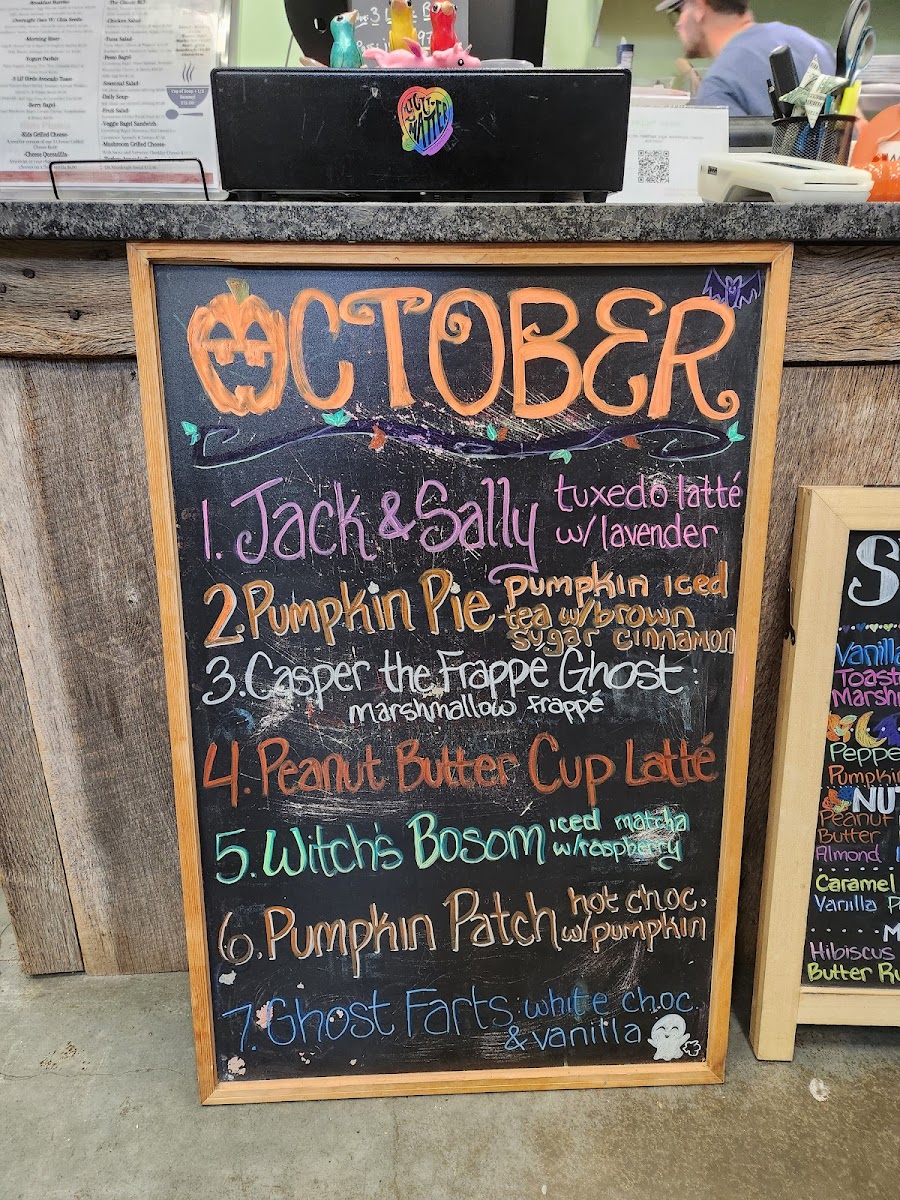 Breakfast Burrito
Overnight Oats W/ Chia Seeds
-Morning Bird-
-Yogurt Parfait-
-Berry Bagel-
-Kids Grilled Cheese-
-Cheese Quesadilla-
-Chicken Salad-
-Tuna Salad-
-Pesto Bagel-
-Seasonal Salad-
-Daily Soup-
-Fruit Salad-
-Veggie Bagel Sandwich-
-Mushroom Grilled Cheese-
MATTER
OCTOBER
1. Jack & Sally tuxedo latté
w/ lavender
2. Pumpkin Pie pumpkin iced
tea w/brown
sugar cinnamon
3. Casper the Frappe Ghost:
marshmallow frappé
4. Peanut Butter Cup Latté
5. Witch's Bosom iced matcha
w/raspberry
6. Pumpkin Patch hot choc.
w/pumpkin
7. Ghost Farts: white choc.
& vanilla
S
Vanilla
Toast
Marshm
Peppe
Pumpkin
NUT
Peanut
Butter
Almond
Caramel
Vanilla P
M
Hibiscus
Butter Ru